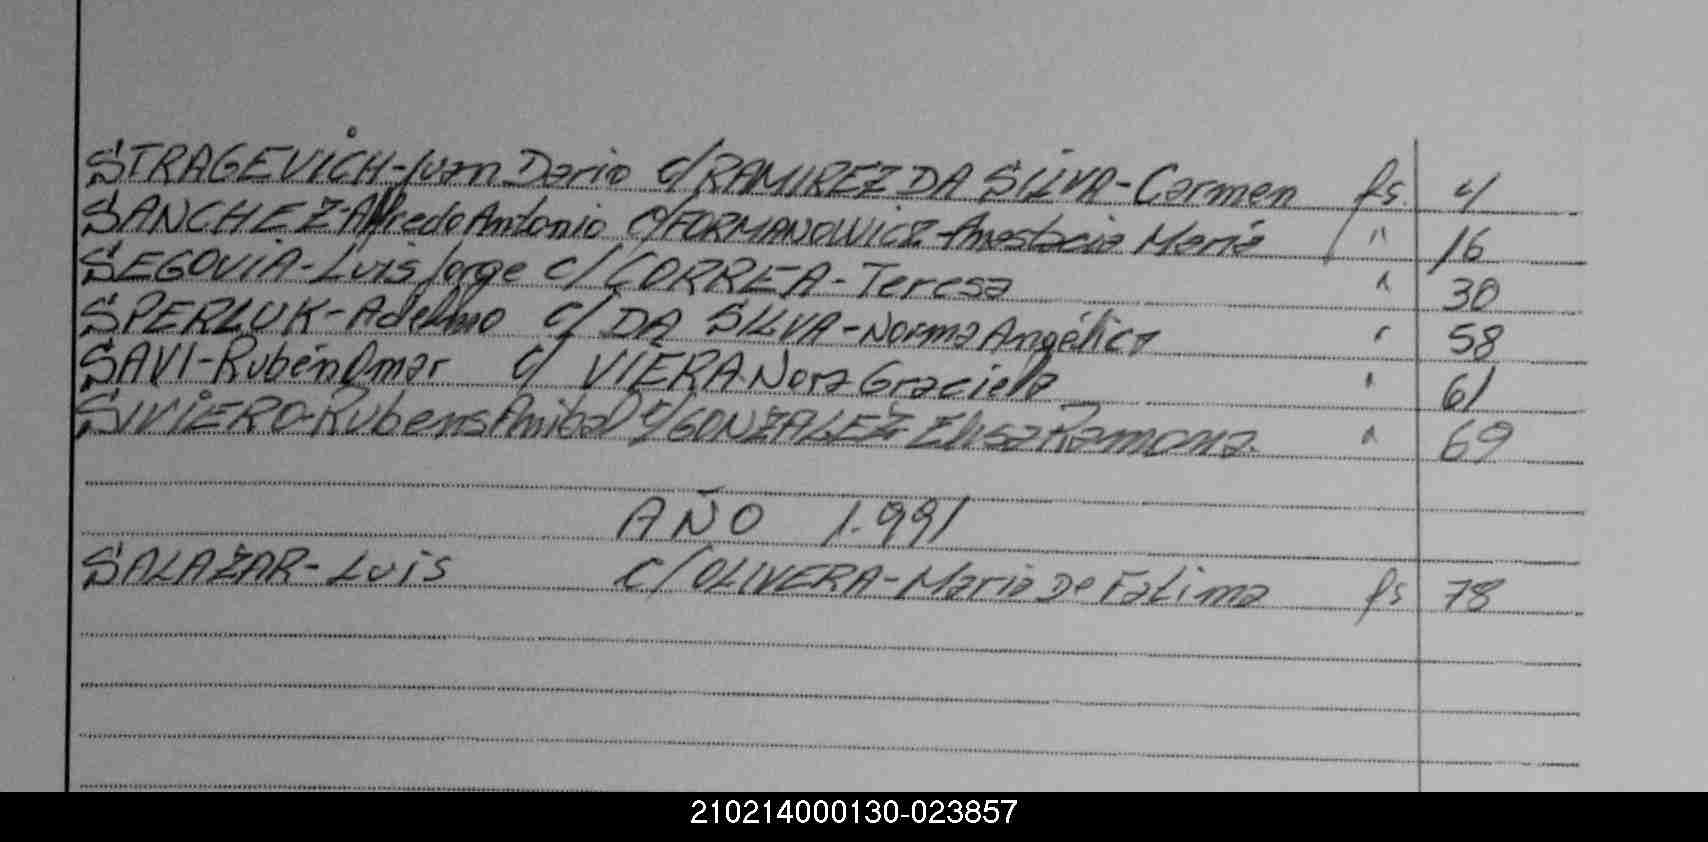 STRAGEVICH-Juan Dario c/RAMIREZ DA SILVA-Carmen fs. 4
SANCHEZ-Alfredo Antonio c/FORMANOWICZ-Anastacia Maria " 16
SEGOVIA-Luis Jorge c/CORREA-Teresa " 30
SPERLUK-Adelmo c/ DA SILVA-Norma Angélica " 58
SAVI-Rubén Omar c/ VIERA Nora Graciela " 61
SIVIERO-Rubens Anibal c/GONZALEZ Elisa Ramona. " 69
AÑO 1.991
SALAZAR-Luis c/OLIVERA-Maria De Fatima fs 78
210214000130-023857